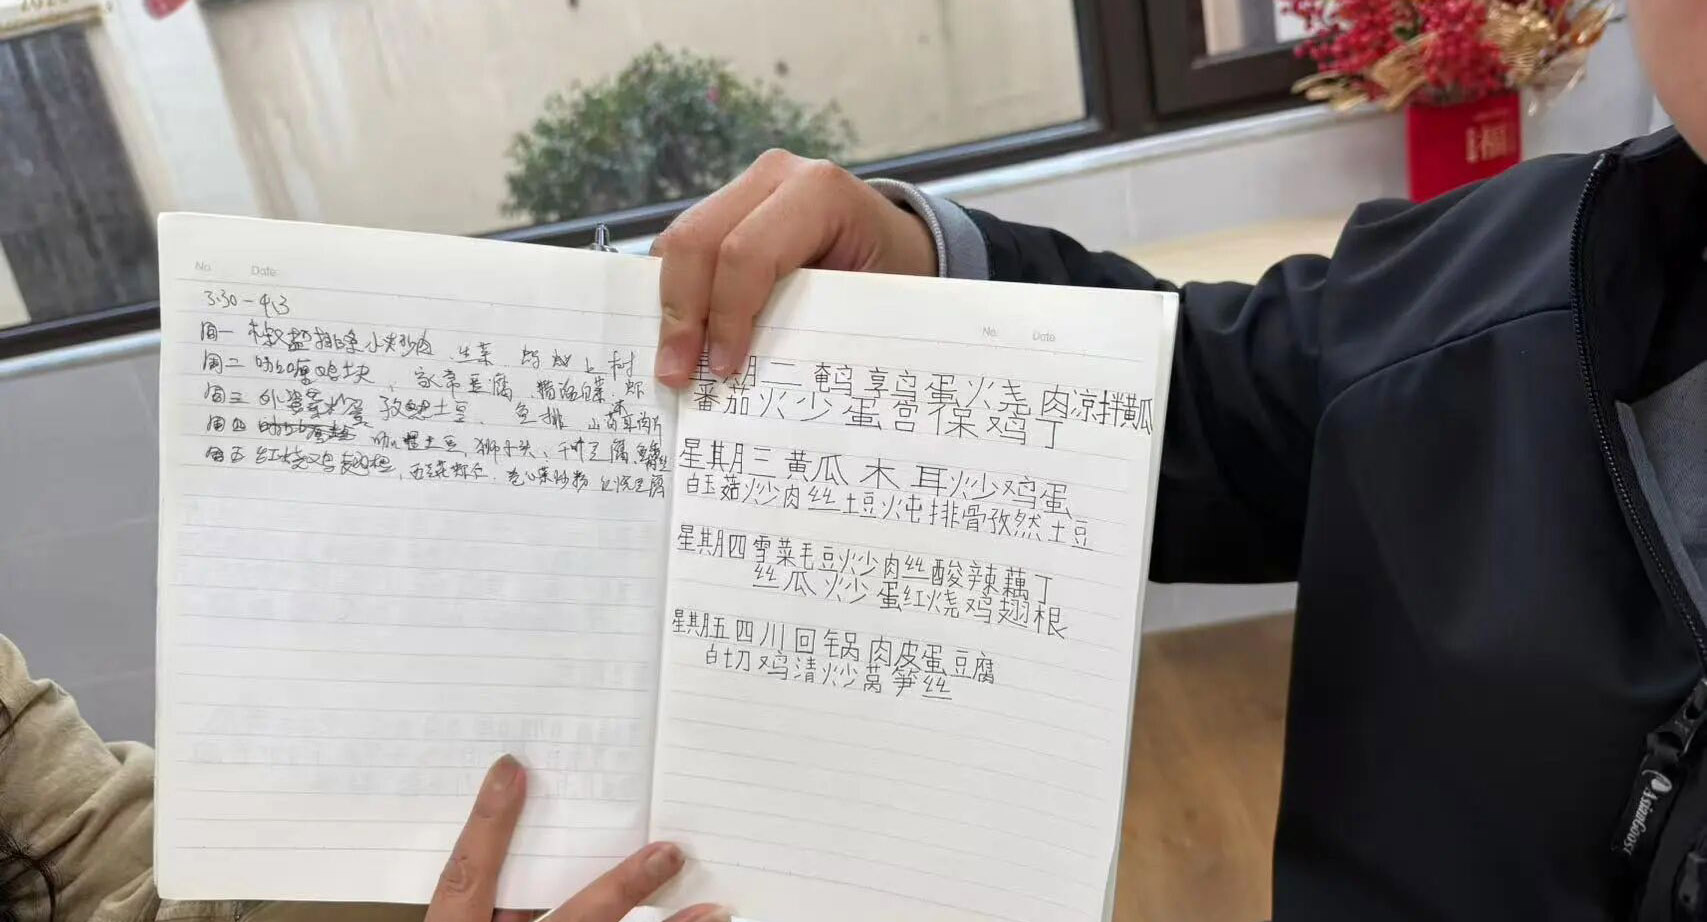 No. Date
3.30-4.3
周一 椒盐排条 小炒肉、生菜 蚂蚁上树
周二 咖喱鸡块、家常豆腐 醋溜白菜 虾
周三 外婆菜炒蛋 孜然土豆、鱼排 山药木耳肉片
周四 咖喱土豆,狮子头,千叶豆腐
周五 红烧鸡翅根,西兰花虾仁、包心菜炒粉 红烧豆腐
No. Date
星期二 鹌鹑蛋火烧肉凉拌黄瓜
番茄炒蛋宫保鸡丁
星期三 黄瓜木耳炒鸡蛋
白玉菇炒肉丝土豆炖排骨孜然土豆
星期四 雪菜毛豆炒肉丝酸辣藕丁
丝瓜炒蛋红烧鸡翅根
星期五 四川回锅肉皮蛋豆腐
白切鸡清炒莴笋丝
福